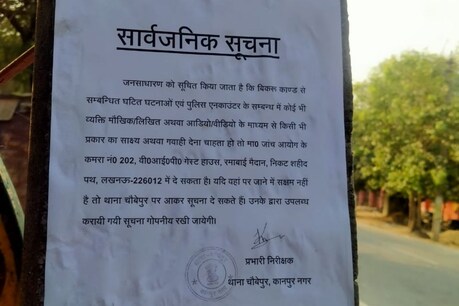 सार्वजनिक सूचना
जनसाधारण को सूचित किया जाता है कि बिकरू काण्ड से
सम्बन्धित घटित घटनाओं एवं पुलिस एनकाउंटर के सम्बन्ध में कोई भी
व्यक्ति मौखिक/लिखित अथवा आडियो/वीडियो के माध्यम से किसी भी
प्रकार का साक्ष्य अथवा गवाही देना चाहता हो तो मा0 जांच आयोग के
कमरा नं0 202, वी0आई0पी0 गेस्ट हाउस, रमाबाई मैदान, निकट शहीद
पथ, लखनऊ-226012 में दे सकता है। यदि यहां पर जाने में सक्षम नहीं
है तो थाना चौबेपुर पर आकर सूचना दे सकते हैं। उनके द्वारा उपलब्ध
करायी गयी सूचना गोपनीय रखी जायेगी।
प्रभारी निरीक्षक
थाना चौबेपुर, कानपुर नगर